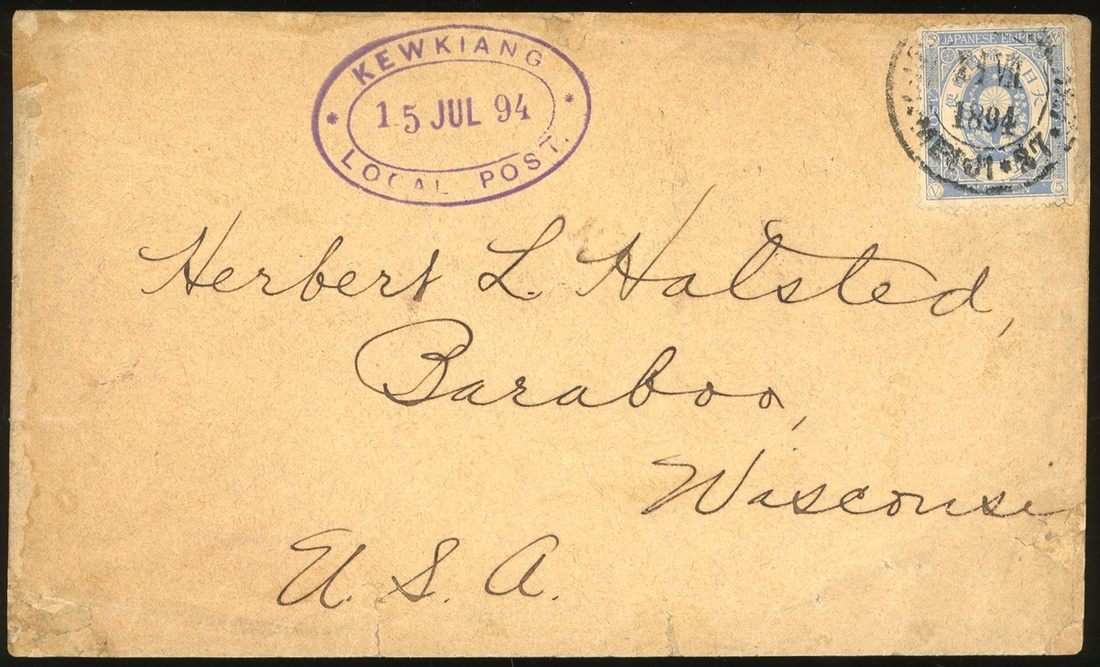 KEWKIANG
15 JUL 94
LOCAL POST.
JAPANESE EMPIRE
1894
Herbert L. Halsted,
Baraboo,
Wisconsi
U. S. A.